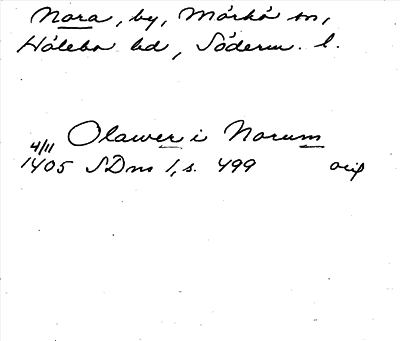 Nora, by, Mörkö sn,
Hölebo hd, Söderm. l.
Olawer i Norum
4/11
1405 SDns 1, s. 499 orig